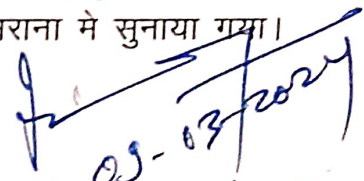 राना मे सुनाया गया।
09-03-2024